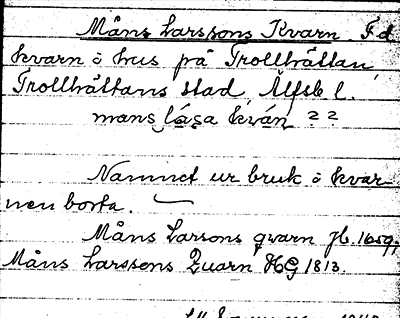 Måns Larssons Kvarn F.d.
kvarn o hus på Trollhättan
Trollhättans stad Älfsb l.
mans lása kván ??
Namnet ur bruk o kvar-
nen borta.
Måns Larsons qvarn jb. 1659,
Måns Larssons Quarn HG 1813.